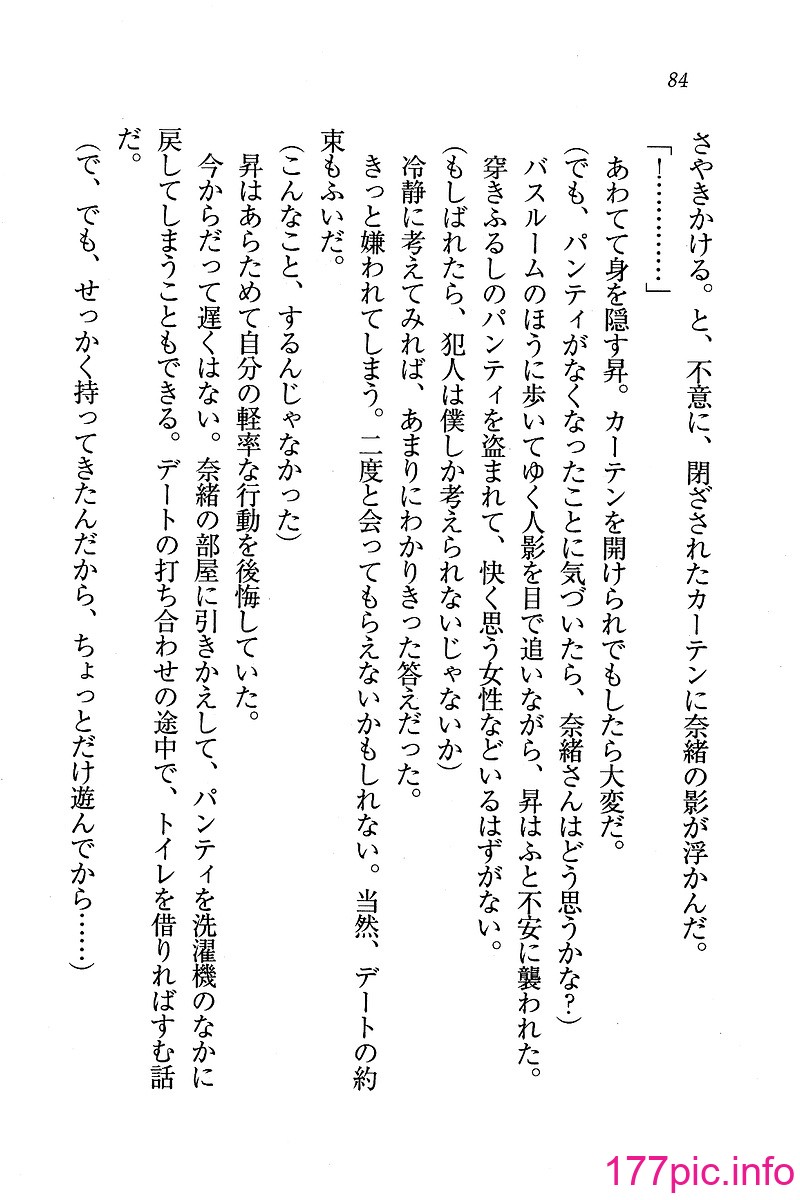 84
さやきかける。と、不意に、閉ざされたカーテンに奈緒の影が浮かんだ。
「！…………」
あわてて身を隠す昇。カーテンを開けられでもしたら大変だ。
（でも、パンティがなくなったことに気づいたら、奈緒さんはどう思うかな？）
バスルームのほうに歩いてゆく人影を目で追いながら、昇はふと不安に襲われた。
穿きふるしのパンティを盗まれて、快く思う女性などいるはずがない。
（もしばれたら、犯人は僕しか考えられないじゃないか）
冷静に考えてみれば、あまりにわかりきった答えだった。
きっと嫌われてしまう。二度と会ってもらえないかもしれない。当然、デートの約
束もふいだ。
（こんなこと、するんじゃなかった）
昇はあらためて自分の軽率な行動を後悔していた。
今からだって遅くはない。奈緒の部屋に引きかえして、パンティを洗濯機のなかに
戻してしまうこともできる。デートの打ち合わせの途中で、トイレを借りればすむ話
だ。
（で、でも、せっかく持ってきたんだから、ちょっとだけ遊んでから……）
177pic.info